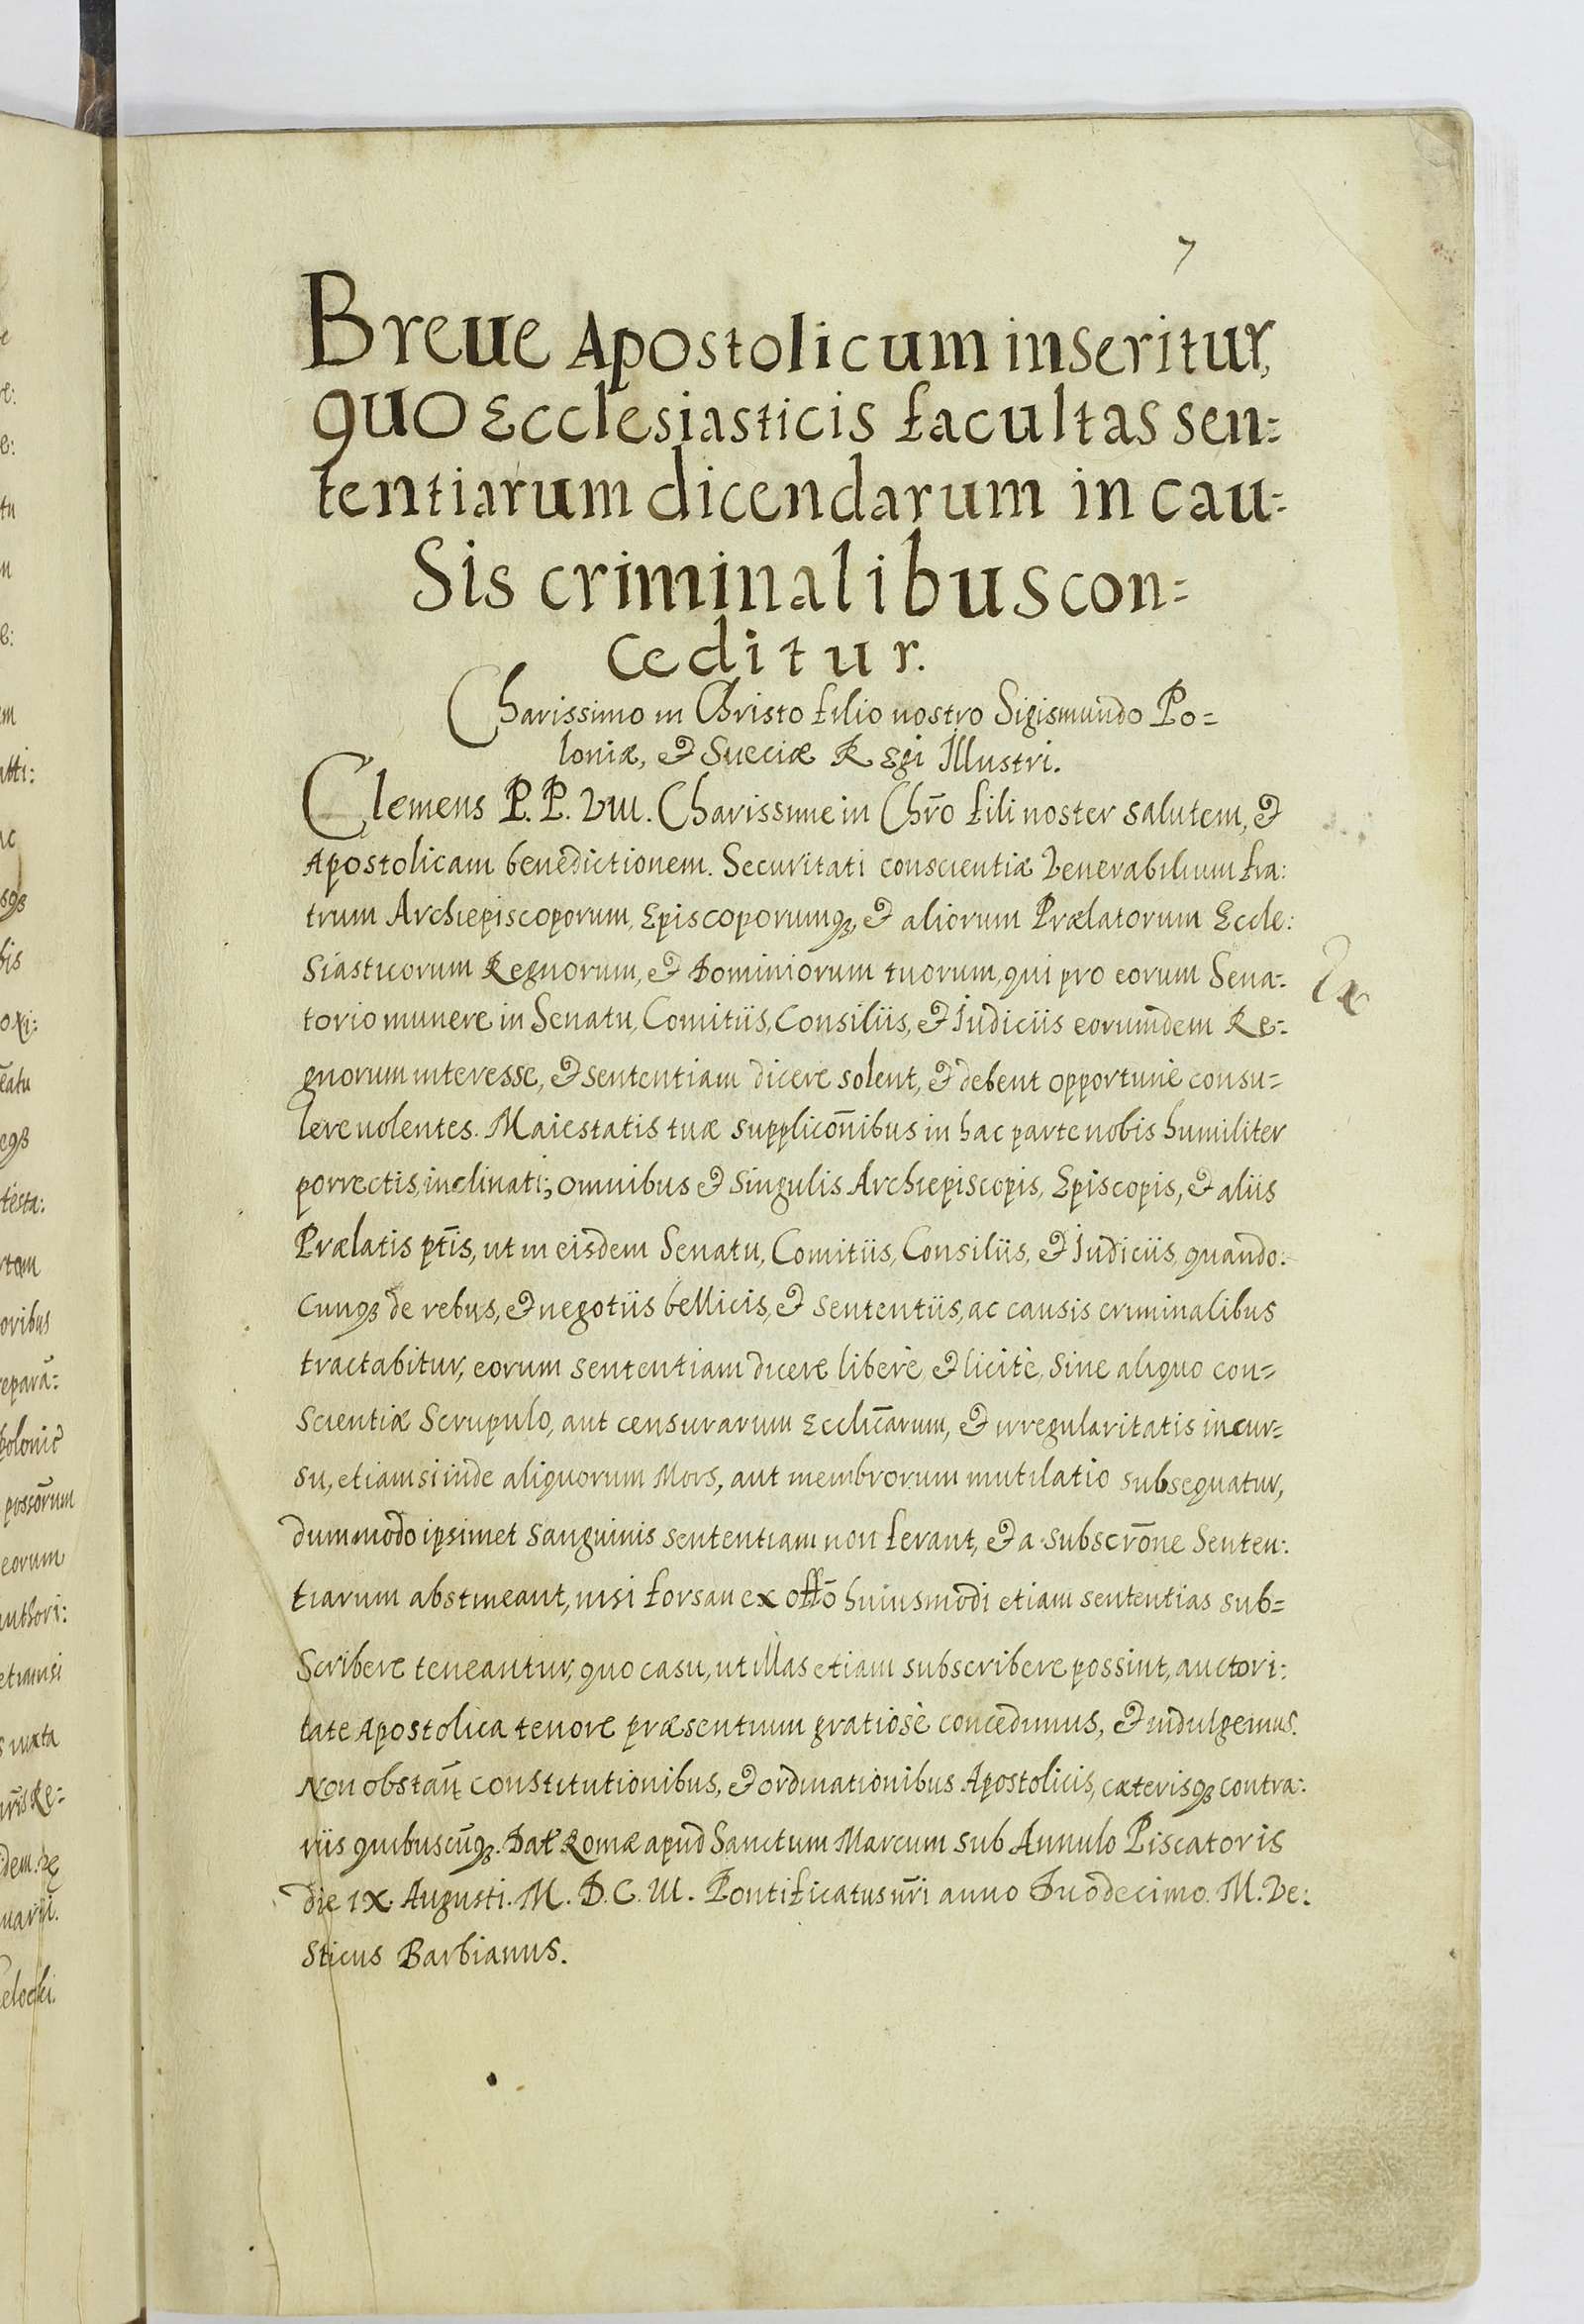 7
Breue Apostolicum inseritur,
quo Ecclesiasticis facultas sen=
tentiarum dicendarum in cau=
sis criminalibus con=
ceditur.
Charissimo in Christo filio nostro Sigismundo Po=
loniæ, & Sueciæ Regi Illustri.
Clemens P.P. VIII. Charissime in Chr̄o fili noster salutem, &
Apostolicam benedictionem. Securitati conscientiæ Venerabilium fra:
trum Archiepiscoporum, Episcoporumqꝫ, & aliorum Prælatorum Eccle:
siasticorum Regnorum, & Dominiorum tuorum, qui pro eorum Sena=
torio munere in Senatu, Comitiis, Consiliis, & Iudiciis eorumdem Re=
gnorum interesse, & sententiam dicere solent, & debent opportunè consu=
lere uolentes. Maiestatis tuæ supplicōnibus in hac parte nobis humiliter
porrectis, inclinati; omnibus & singulis Archiepiscopis, Episcopis, & aliis
Prælatis pt̄is, ut in eisdem Senatu, Comitiis, Consiliis, & Iudiciis, quando:
cunqꝫ de rebus, & negotiis bellicis, & sententiis, ac causis criminalibus
tractabitur, eorum sententiam dicere liberè, & licitè, sine aliquo con=
scientiæ scrupulo, aut censurarum Ecclic̄arum, & irregularitatis incur=
su, etiamsi inde aliquorum Mors, aut membrorum mutilatio subsequatur,
dummodo ipsimet sanguinis sententiam non ferant, & a subscrōne senten:
tiarum abstineant, nisi forsan ex offō huiusmodi etiam sententias sub=
scribere teneantur, quo casu, ut illas etiam subscribere possint, auctori:
tate Apostolica tenore præsentium gratiosè concedimus, & indulgemus.
Non obstan̄ constitutionibus, & ordinationibus Apostolicis, cæterisqꝫ contra:
riis quibuscūqꝫ. Dat̄ Romæ apud Sanctum Marcum sub Annulo Piscatoris
die IX. Augusti. M. D. C. III. Pontificatus nr̄i anno Duodecimo. M. Ve:
sticus Barbianus.